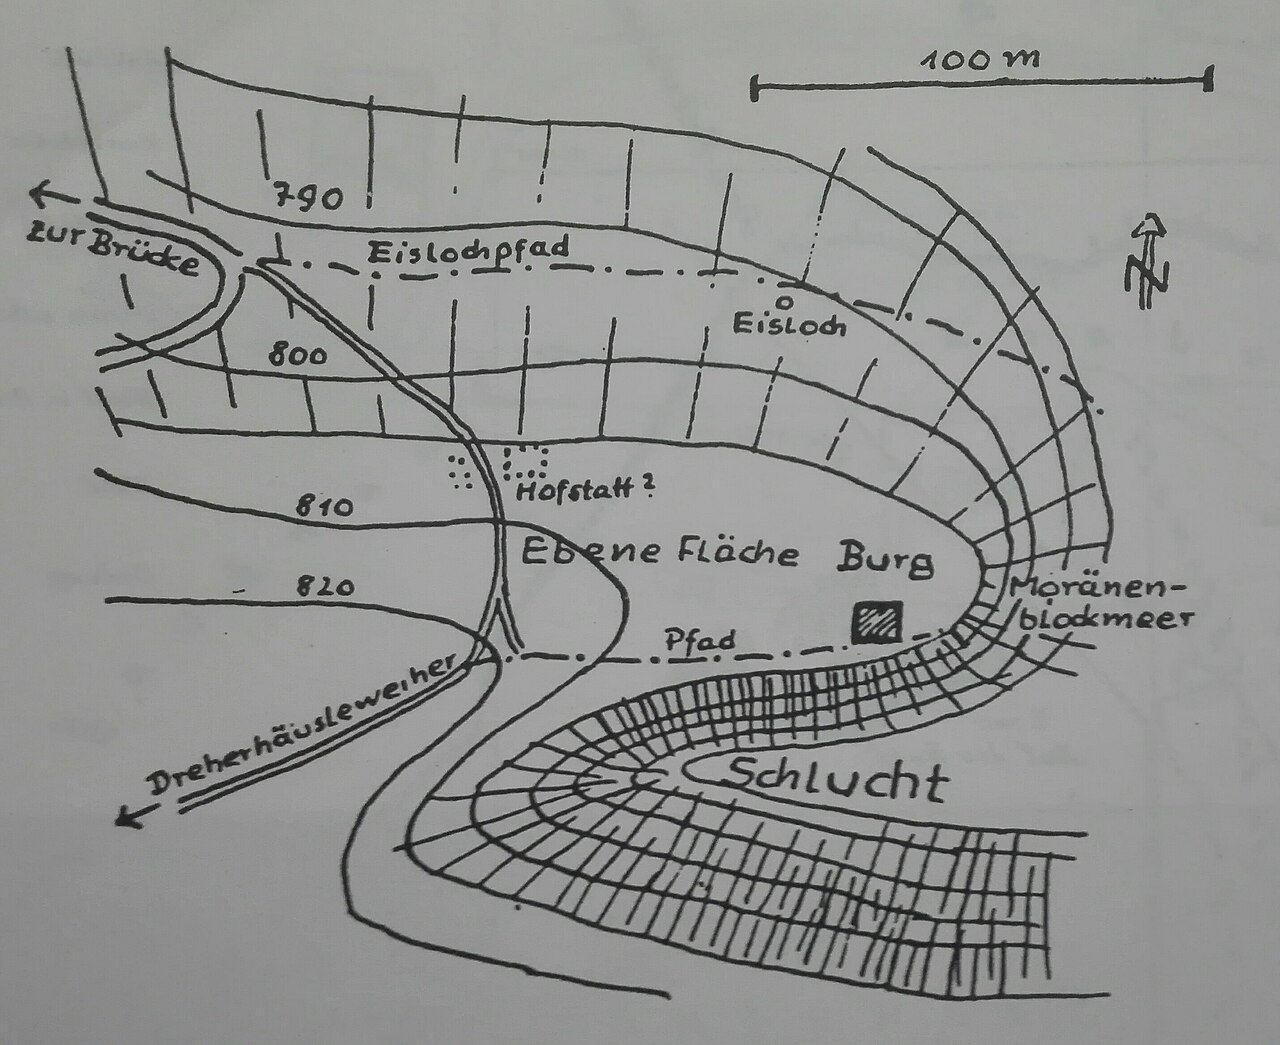 100 m
790
zur Brücke
Eislochpfad
N
Eisloch
800
Hofstatt?
810
Ebene Fläche Burg
820
Moränen-
blockmeer
Pfad
Dreherhäusleweiher
Schlucht